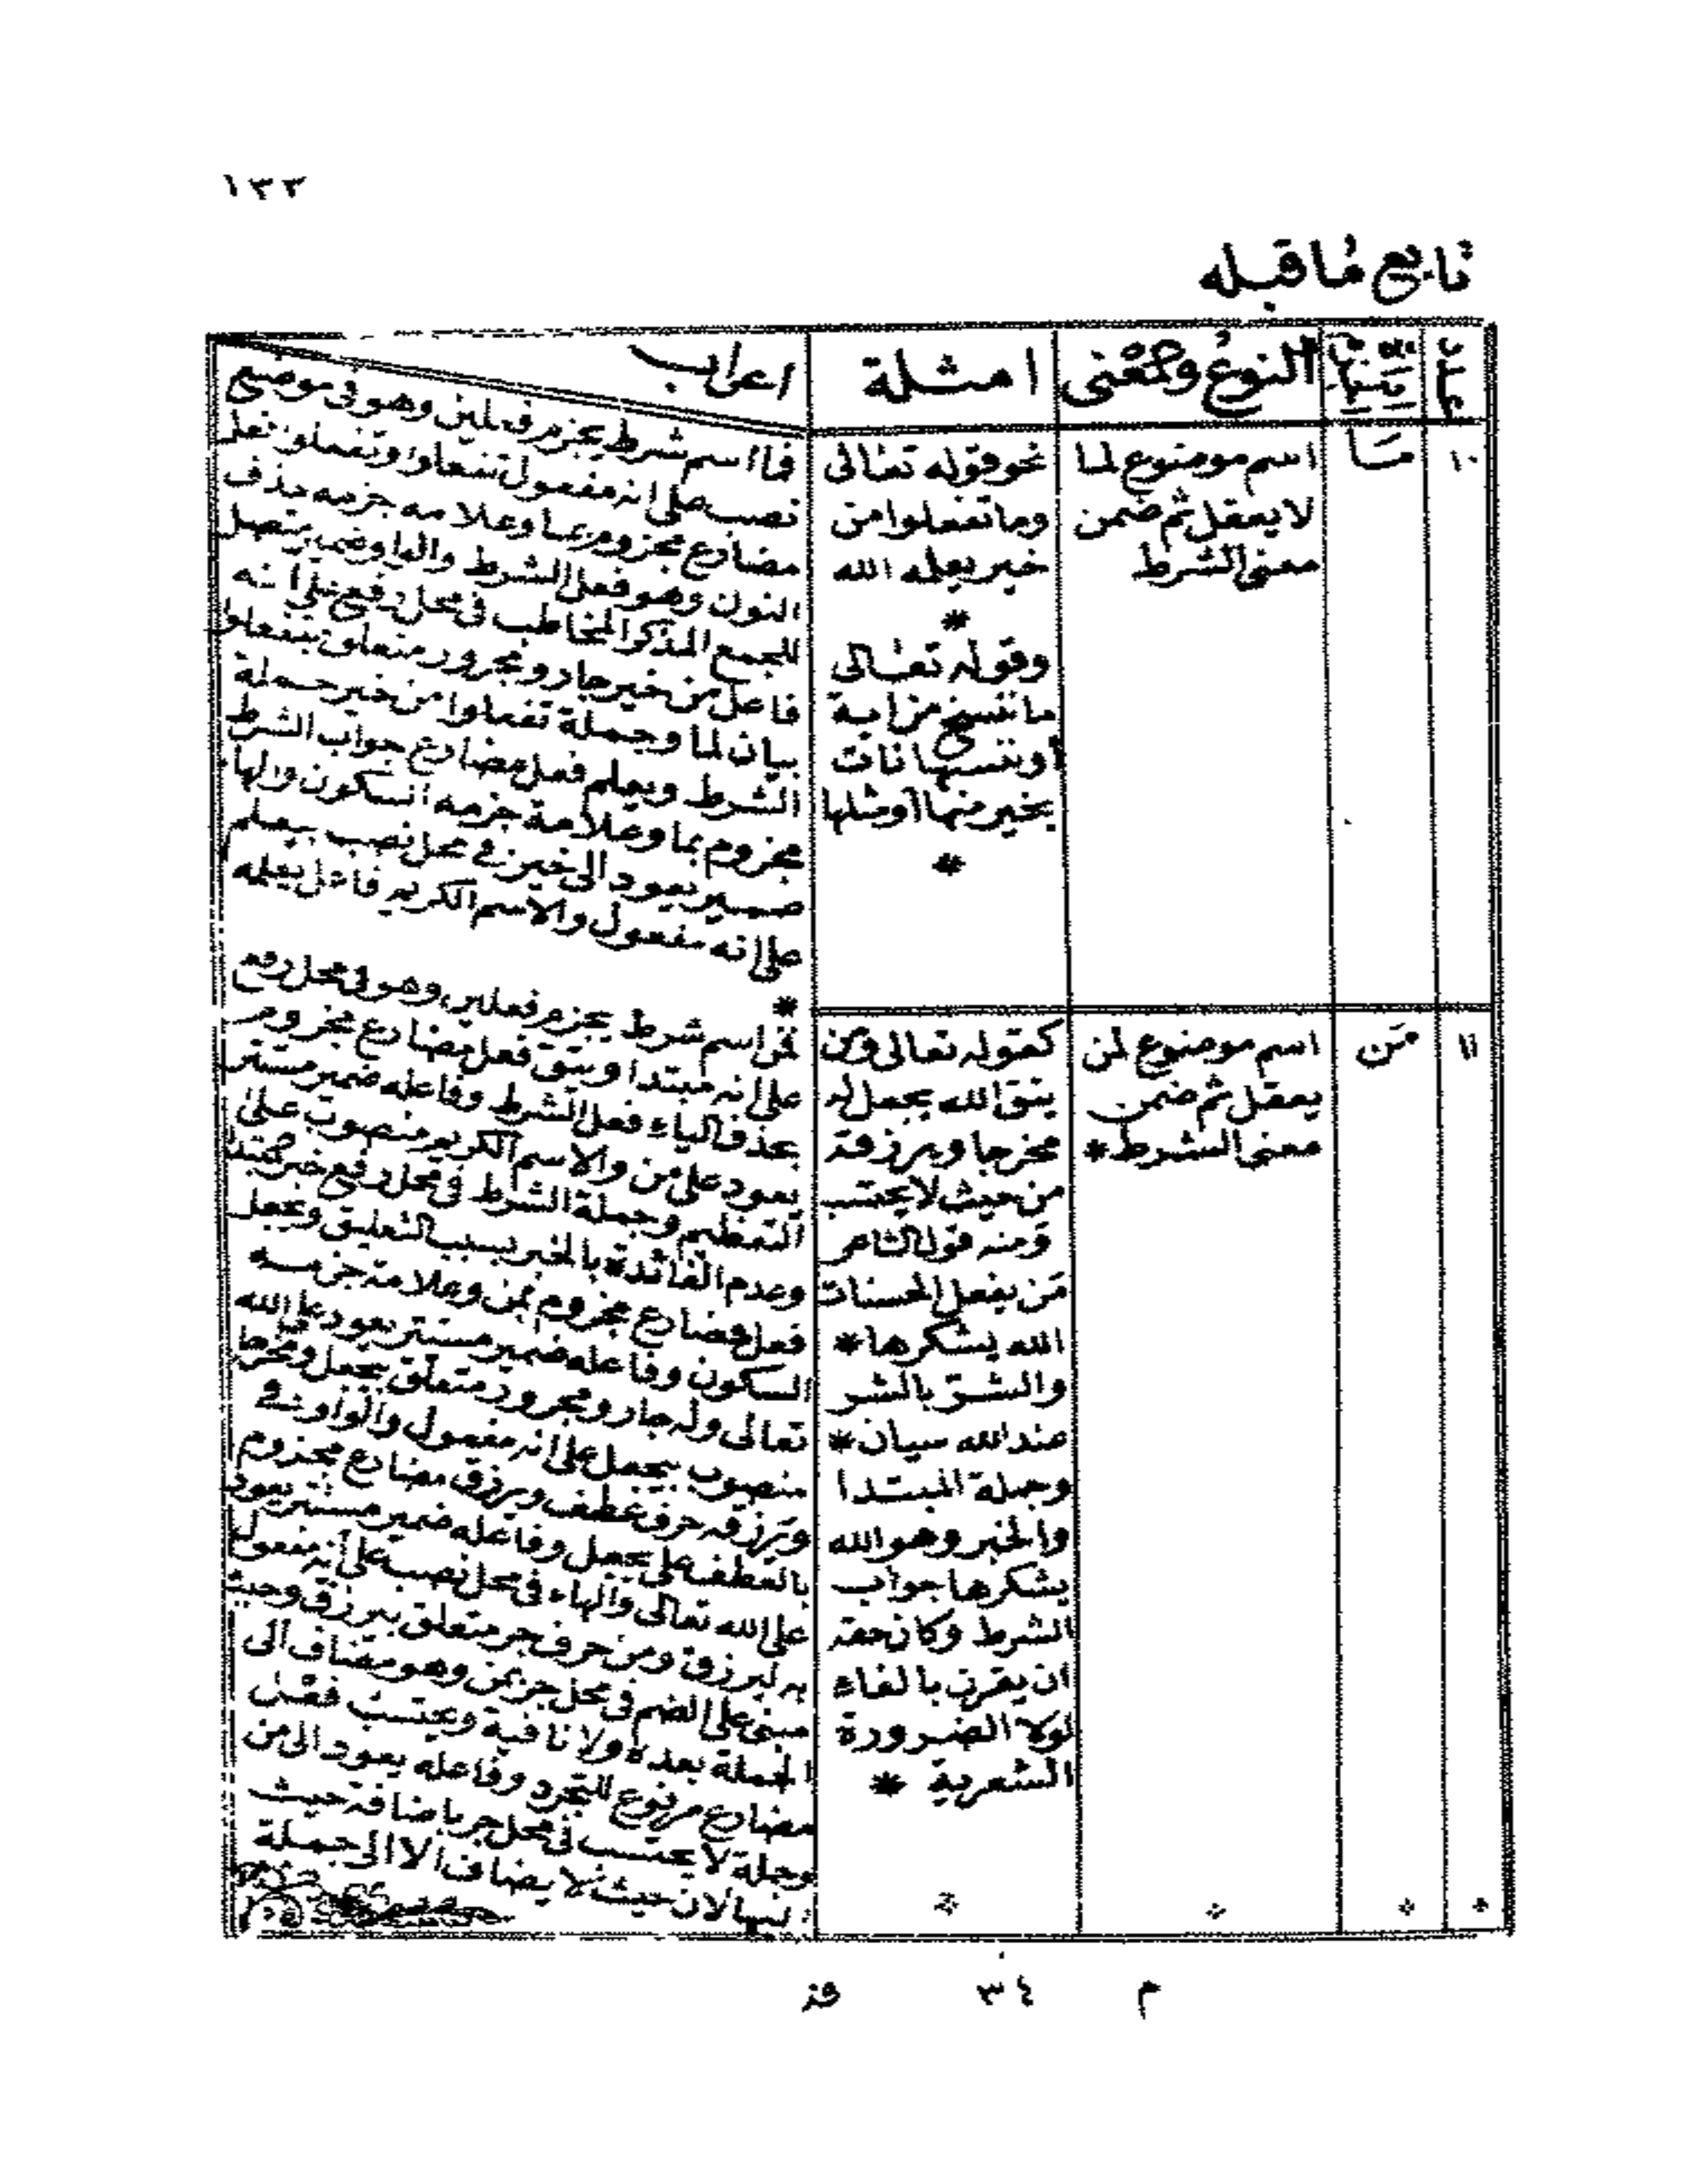 ١٣٣
تابع ما قبله
النوع والمعنى
امثلة
اعراب
١٠
مَا
اسم موضوع لما
لا يعقل ثم ضمن
معنى الشرط
نحو قوله تعالى
وما تفعلوا من
خير يعلمه الله
*
وقوله تعالى
ما ننسخ من اية
أو ننسها نات
بخير منها أو مثلها
*
فما اسم شرط يجزم فعلين وهو فى موضع
نصب على انه مفعول تفعلوا وتفعلوا فعل
مضارع مجزوم بما وعلامه جزمه حذف
النون وهو فعل الشرط والواو ضمير متصل
للجمع المذكر المخاطب فى محل رفع على انه
فاعل من خير جار ومجرور متعلق بتفعلوا
بيان لما وجملة تفعلوا من خير جملة
الشرط ويعلم فعل مضارع جواب الشرط
مجزوم بما وعلامة جزمه السكون والها
ضمير يعود الى خير فى محل نصب بيعلم
على انه مفعول والاسم الكريم فاعل يعلمه
*
١١
مَن
اسم موضوع لمن
يعقل ثم ضمن
معنى الشرط *
كقوله تعالى ومن
يتق الله يجعل له
مخرجا ويرزقه
من حيث لا يحتسب
ومنه قول الشاعر
مَن يفعل الحسنات
الله يشكرها *
والشر بالشر
عند الله سيان *
وجملة المبتدا
والخبر وهو الله
يشكرها جواب
الشرط وكان حقه
ان يقرن بالفاء
لولا الضرورة
الشعرية *
فمن اسم شرط يجزم فعلين وهو فى محل رفع
على انه مبتدا ويتق فعل مضارع مجزوم
بحذف الياء فعل الشرط وفاعله ضمير مستتر
يعود على من والاسم الكريم منصوب على
التعظيم وجملة الشرط فى محل رفع خبر المبتدا
وعدم الفائدة بالخبر بسبب التعليق ويجعل
فعل مضارع مجزوم بمن وعلامة جزمه
السكون وفاعله ضمير مستتر يعود على الله
تعالى وله جار ومجرور متعلق بيجعل ومخرجا
منصوب بيجعل على انه مفعول والواو فى
ويرزقه حرف عطف ويرزق مضارع مجزوم
بالعطف على يجعل وفاعله ضمير مستتر يعود
على الله تعالى والهاء فى محل نصب على انه مفعول
به ليرزق ومن حرف جر متعلق بيرزق وحيث
مبنى على الضم فى محل جر بمن وهو مضاف الى
الجملة بعده ولا نافية ويحتسب فعل
مضارع مرفوع للتجرد وفاعله يعود الى من
وجملة لا يحتسب فى محل جر باضافة حيث
اليها لان حيث لا يضاف الا الى جملة
م ٣٤